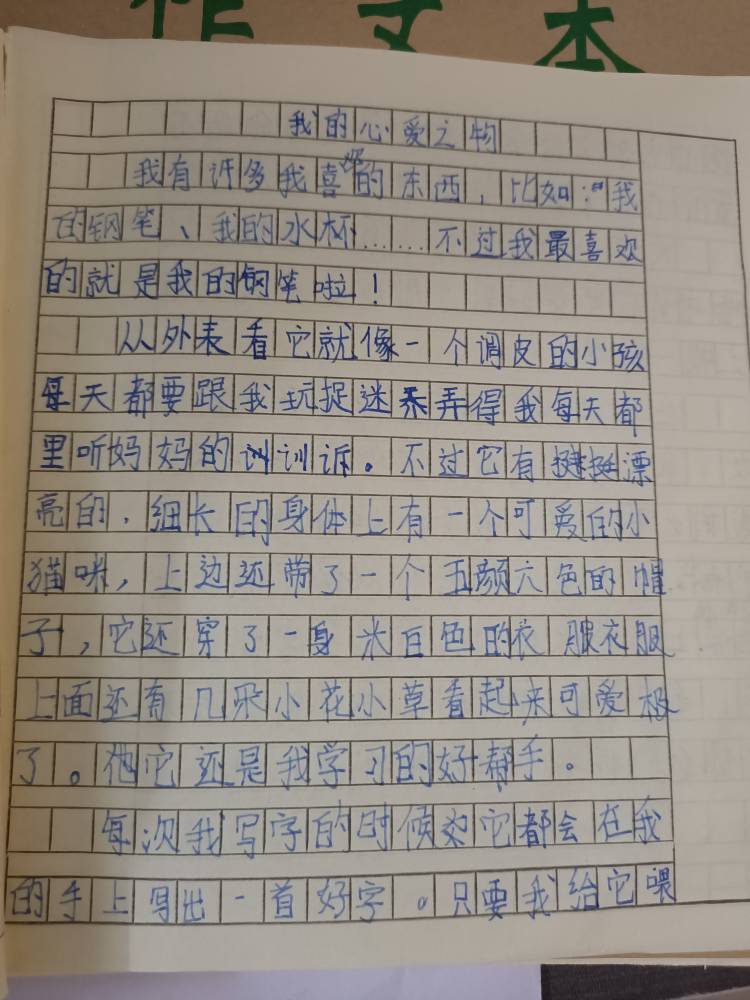 作文本
我的心爱之物
我有许多我喜欢的东西，比如：“我
的钢笔、我的水杯……不过我最喜欢
的就是我的钢笔啦！
从外表看它就像一个调皮的小孩
每天都要跟我玩捉迷弄得我每天都
里听妈妈的训诉。不过它有挺漂
亮的，细长的身体上有一个可爱的小
猫咪，上边还带了一个五颜六色的帽
子，它还穿了一身米白色的衣服衣服
上面还有几朵小花小草看起来可爱极
了。他它还是我学习的好帮手。
每次我写字的时候它都会在我
的手上写出一首好字。只要我给它喂